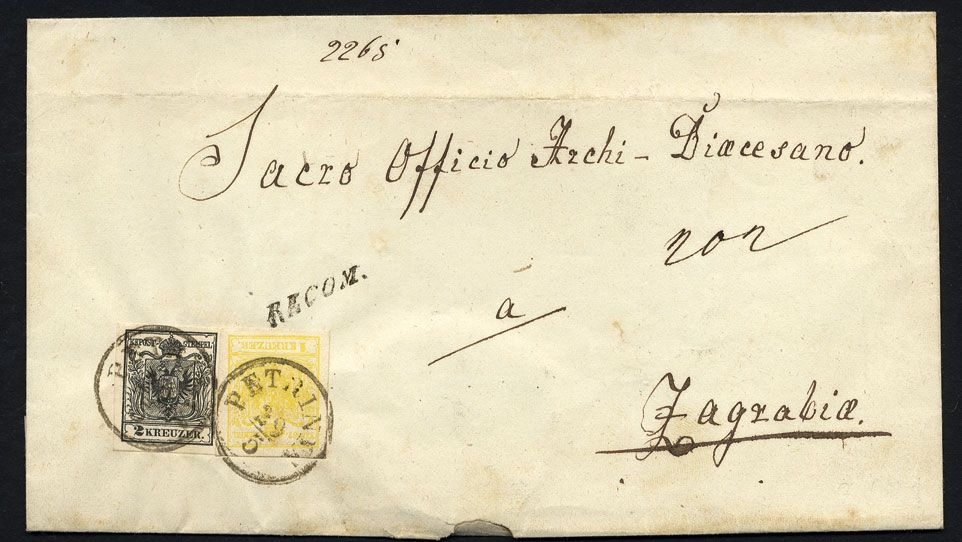 2265
Sacro Officio Archi-Diœcesano.
non
a
Zagrabiæ.
RECOM.
KKPOST-STEMPEL
2 KREUZER.
1 KREUZER.
PETRINIA